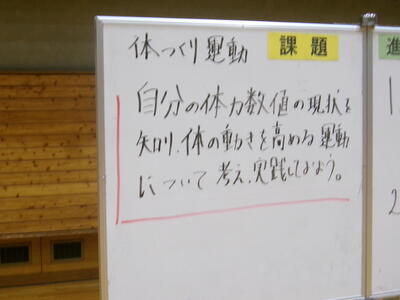 体つくり運動 課題
自分の体力数値の現状を
知り、体の動きを高める運動
について考え、実践してみよう。
進
1.
2